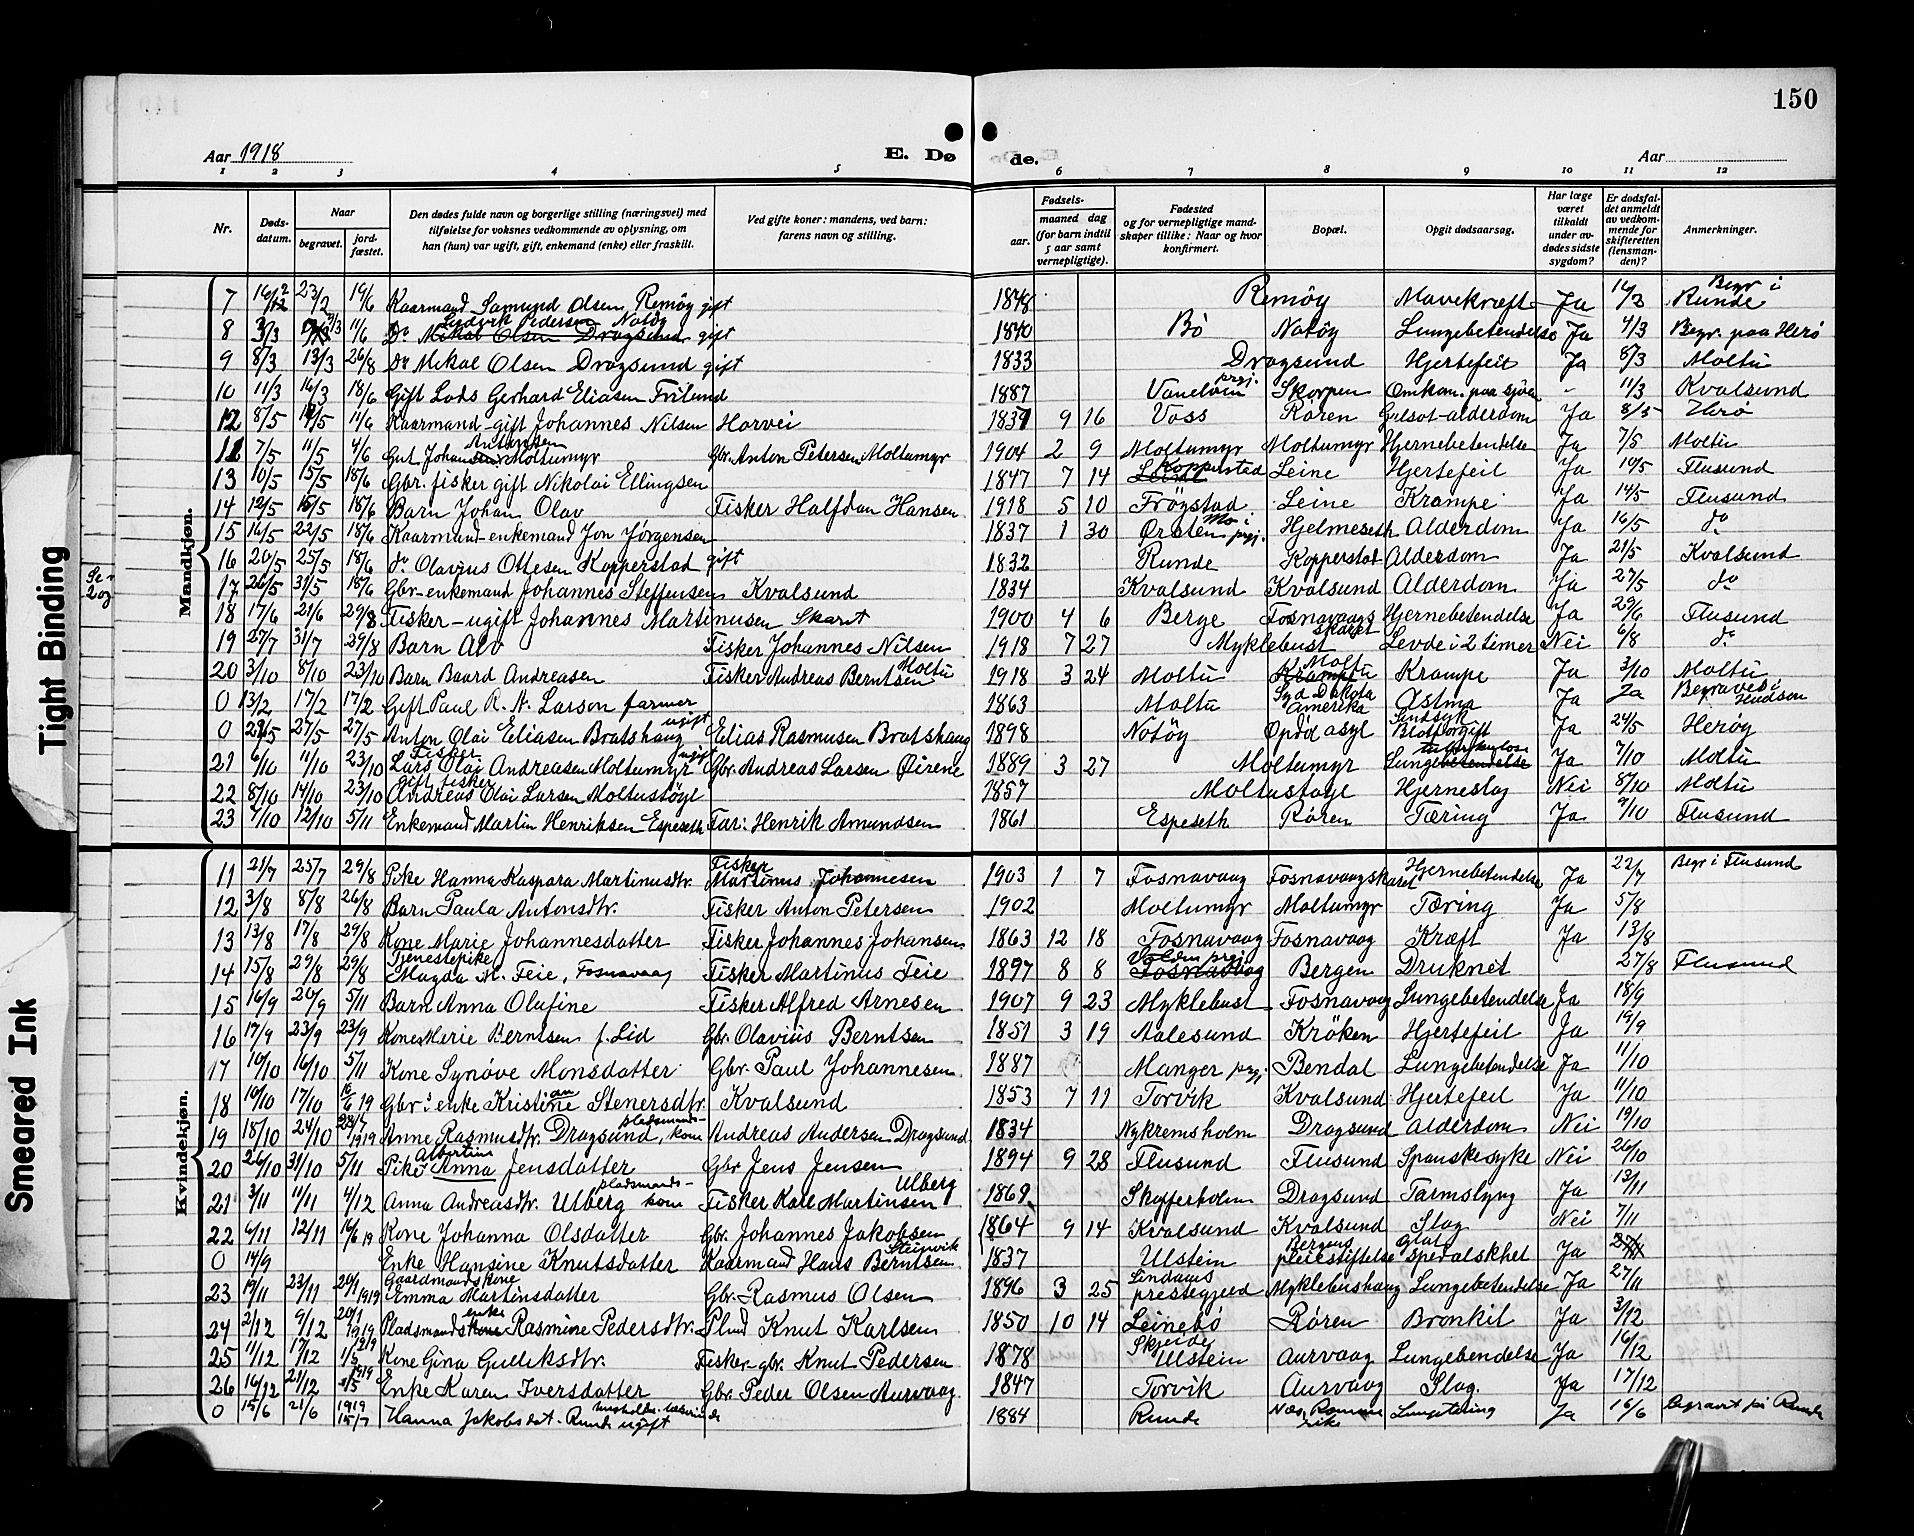 150
Aar 1918
E. Dø
de.
Aar
1 2 3 4 5 6 7 8 9 10 11 12
Nr.
Døds-
datum.
Naar
begravet.
jord-
fæstet.
Den dødes fulde navn og borgerlige stilling (næringsvei) med
tilføielse for voksnes vedkommende av oplysning, om
han (hun) var ugift, gift, enkemand (enke) eller fraskilt.
Ved gifte koner: mandens, ved barn:
farens navn og stilling.
Fødsels-
aar.
maaned dag
(for barn indtil
5 aar samt
vernepligtige).
Fødested
og for vernepligtige mand-
skaper tillike: Naar og hvor
konfirmert.
Bopæl.
Opgit dødsaarsag.
Har læge
været
tilkaldt
under av-
dødes sidste
sygdom?
Er dødsfal-
det anmeldt
av vedkom-
mende for
skifteretten
(lensman-
den)?
Anmerkninger.
Mandkjøn.
7 23/2 19/6 Kaarmand Samund Olsen Remöy gift 1848 Remöy Mavekræft Ja Begr i Runde
8 3/3 11/6 Do Ludvik Pedersen Notöy Mikal Olsen Dragsund gift 1840 Bö Notöy Lungebetendelse Ja 4/3 Begr. paa Herö
9 8/3 13/3 26/8 do Mekal Olsen Dragsund gift 1833 Dragsund Hjertefeil Ja 8/3 Moltu
10 11/3 16/3 18/6 Gift Lods Gerhard Eliasen Frilund 1887 prgj. Skorpen Omkom. paa sjöen - 11/3 Kvalsund
12 8/5 11/6 Kaarmand-gift Johannes Nilsen Horvei 1839 9 16 Voss Røren Gulsot-alderdom Ja 8/5 Herö
11 7/5 11/5 4/6 Gut Johan Antonsen Moltumyr Gbr. Anton Petersen Moltumyr 1904 2 9 Moltumyr Moltumyr Hjernebetendelse Ja 7/5 Moltu
13 10/5 15/5 18/6 Gbr. fisker gift Nikolai Ellingsen 1847 7 14 Kopperstad Leine Hjertefeil Ja 10/5 Flusund
14 12/5 15/5 18/6 Barn Johan Olav Fisker Halfdan Hansen 1918 5 10 Frögstad Leine Krampe Ja 14/5 Flusund
15 16/5 22/5 18/6 Kaarmand-enkemand Jon Jørgensen 1837 1 30 Mo i Ørsten prgj. Hjelmeseth Alderdom Ja 16/5 do
16 20/5 25/5 18/6 do Olavius Ottesen Kopperstad gift 1832 Runde Kopperstad Alderdom Ja 21/5 Kvalsund
17 26/5 31/5 18/6 Gbr-enkemand Johannes Steffensen Kvalsund 1834 Kvalsund Kvalsund Alderdom Ja 27/5 do
18 17/6 21/6 29/8 Fisker-ugift Johannes Martinusen Skaret 1900 4 6 Berge Fosnavaags skaret Hjernebetendelse Ja 29/6 Flusund
19 27/7 31/7 29/8 Barn Alv Fisker Johannes Nilsen 1918 7 27 Myklebust Levde i 2 timer Nei 6/8 do
20 3/10 8/10 23/10 Barn Baard Andreasen Fisker Andreas Berntsen Moltu 1918 3 24 Moltu Moltu Krampe Ja 3/10 Moltu
0 13/2 17/2 17/2 Gift Paul R. N. Larson farmer 1863 Moltu Syd Dakota Amerika Astma Ja Ja Begravet i Hudson
0 27/5 27/5 Anton Olai Eliasen Bratshaug ugift Elias Rasmusen Bratshaug 1898 Notöy Opdöl asyl Sindsyk Blodforgift Ja 24/5 Heröy
21 6/10 11/10 23/10 Fisker Lars Olai Andreasen Moltumyr ugift Gbr. Andreas Larsen Öirene 1889 3 27 Moltumyr Lungetuberkulose Ja 7/10 Moltu
22 8/10 14/10 23/10 Gift fisker Andreas Olai Larsen Moltustöyl 1857 Moltustøyl Hjerneslag Nei 8/10 Moltu
23 7/10 12/10 5/11 Enkemand Martin Henriksen Espeseth Far: Henrik Amundsen 1861 Espeseth Røren Tæring Ja 9/10 Flusund
Kvindekjøn.
11 21/7 25/7 29/8 Pike Hanna Kaspara Martinusdtr. Fisker Martinus Johannesen 1903 1 7 Fosnavaag Fosnavaagskaret Hjernebetendelse Ja 22/7 Begr i Flusund
12 3/8 8/8 26/8 Barn Paula Antonsdtr. Fisker Anton Petersen 1902 Moltumyr Moltumyr Tæring Ja 5/8
13 13/8 17/8 29/8 Kone Marie Johannesdatter Fisker Johannes Johansen 1863 12 18 Fosnavaag Fosnavaag Kræft Ja 13/8
14 15/8 29/8 29/8 Tjenestepike Magda M. Teie, Fosnavaag Fisker Martinus Teie 1897 8 8 Volden prgj Fosnavaag Bergen Druknet 27/8 Flusund
15 16/9 20/9 5/11 Barn Anna Olufine Fisker Alfred Arnesen 1907 9 23 Myklebust Fosnavaag Lungebetendelse Ja 18/9
16 17/9 23/9 23/9 Kone Merie Berntsen f. Lid Gbr. Olavius Berntsen 1851 3 19 Aalesund Kröken Hjertefeil Ja 19/9
17 10/10 16/10 5/11 Kone Synöve Monsdatter Gbr. Paul Johannesen 1887 Manger prgj Bendal Lungebetendelse Ja 11/10
18 10/10 17/10 Gbr: enke Kristiane Stenersdtr. Kvalsund 1853 7 11 Torvik Kvalsund Hjertefeil Ja 11/10
19 18/10 24/10 Anne Rasmusdtr. Dragsund, pladsmands-kone Andreas Andersen Dragsund 1834 Nykremsholm Dragsund Alderdom Nei 19/10
20 26/10 31/10 5/11 Pike Albertine Anna Jensdatter Gbr Jens Jensen 1894 9 28 Flusund Flusund Spanskesyke Nei 26/10
21 3/11 11/11 4/12 Anna Andreasdtr. Ulberg pladsmands-kone Fisker Karl Martinsen Ulberg 1869 Skotholm Dragsund Tarmslyng Ja 13/11
22 6/11 12/11 Kone Johanna Olsdatter Gbr. Johannes Jakobsen 1864 9 14 Kvalsund Kvalsund Slag Nei 7/11
0 14/9 Enke Hansine Knutsdatter Kaarmand Hans Berntsen Steinvik 1837 Ulstein Bergens pleiestiftelse Glat spedalskhet Ja
23 19/11 23/11 20/1 1919 Gaardmandskone Emma Martinsdatter Gbr. Rasmus Olsen 1896 3 25 Lindaas prestegjeld Myklebusthaug Lungebetendelse Ja 27/11
24 2/12 9/12 20/1 1919 Pladsmands enke Rasmine Pedersdtr. Plmd Knut Karlsen 1850 10 14 Leinebö Røren Bronkit Ja 3/12
25 11/12 17/12 1/5 1919 Kone Gina Gulliksdtr. Fisker-gbr. Knut Pedersen 1878 Skjeide Ulstein Aurvaag Lungebendelse Ja 16/12
26 16/12 21/12 1/5 1919 Enke Karen Iversdatter Gbr. Peder Olsen Aurvaag. 1847 Torvik Aurvaag Slag. Ja 17/12
0 15/6 21/6 1919 15/7 Hanna Jakobsdat. Runde ugift 1884 Runde Lungetæring Ja 16/6 Begravt på Runde
Tight Binding
Smeared Ink